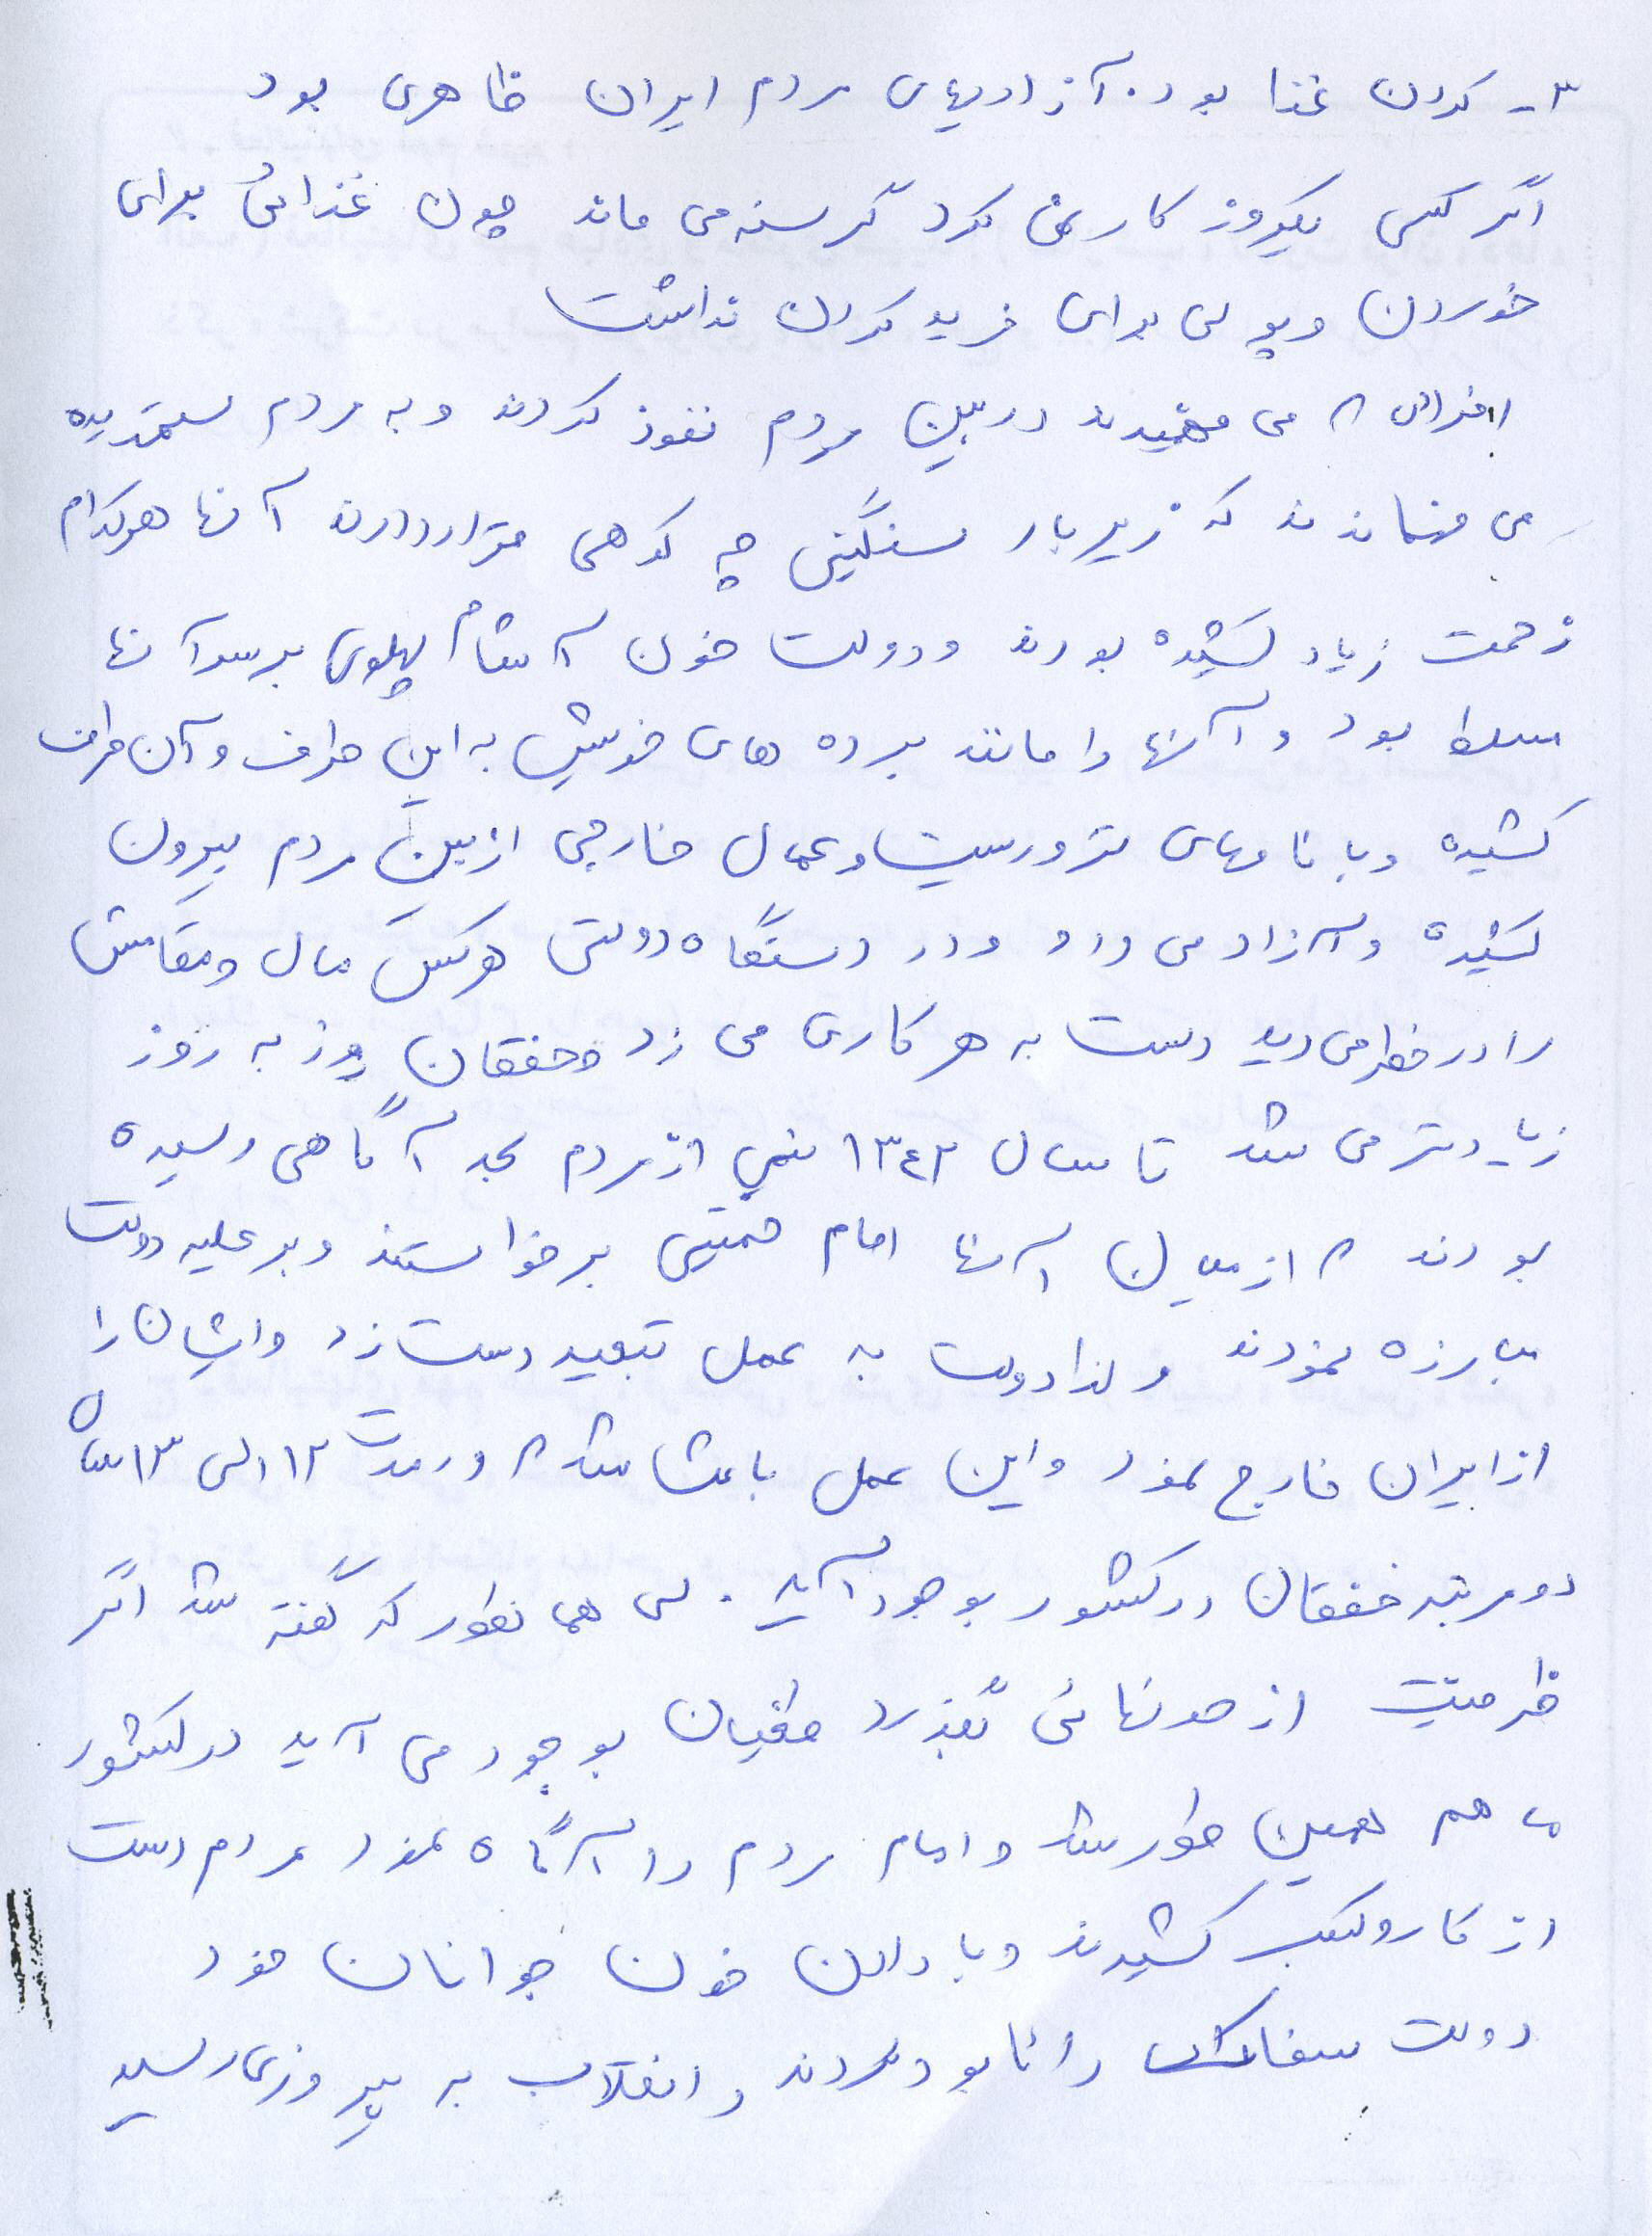 ۳- کردن غذا بود. آزادیهای مردم ایران ظاهری بود
اگر کسی یکروز کار نمی کرد گرسنه می ماند چون غذائی برای
خوردن و پولی برای خرید کردن نداشت
افرادی که می فهمیدند در بین مردم نفوذ کردند و به مردم ستمدیده
می فهماندند که زیر بار سنگینی چه کوهی قرار دارند آنها هرکدام
زحمت زیاد کشیده بودند و دولت خون آشام پهلوی بر سر آنها
مسلط بود و آنها را مانند برده های خویش به این طرف و آن طرف
کشیده و با نامهای تروریست و عمال خارجی از بین مردم بیرون
کشیده و آزار می داد و در دستگاه دولتی هرکس مال و مقامش
را در خطر می دید دست به هر کاری می زد و خفقان روز به روز
زیادتر می شد تا سال ۱۳۴۲ نیمی از مردم بحد آگاهی رسیده
بودند که از میان آنها امام خمینی برخواستند و بر علیه دولت
مبارزه نمودند و لذا دولت به عمل تبعید دست زد و ایشان را
از ایران خارج نمود و این عمل باعث شد که در مدت ۱۲ الی ۱۳ سال
دو مرتبه خفقان در کشور بوجود آید. پس همانطور که گفته شد اگر
ظرفیت از حد نهائی بگذرد طغیان بوجود می آید در کشور
ما هم همین طور شد و امام مردم را آگاه نمود مردم دست
از کار و کسب کشیدند و با دادن خون جوانان خود
دولت سفاک را نابود کردند و انقلاب به پیروزی رسید